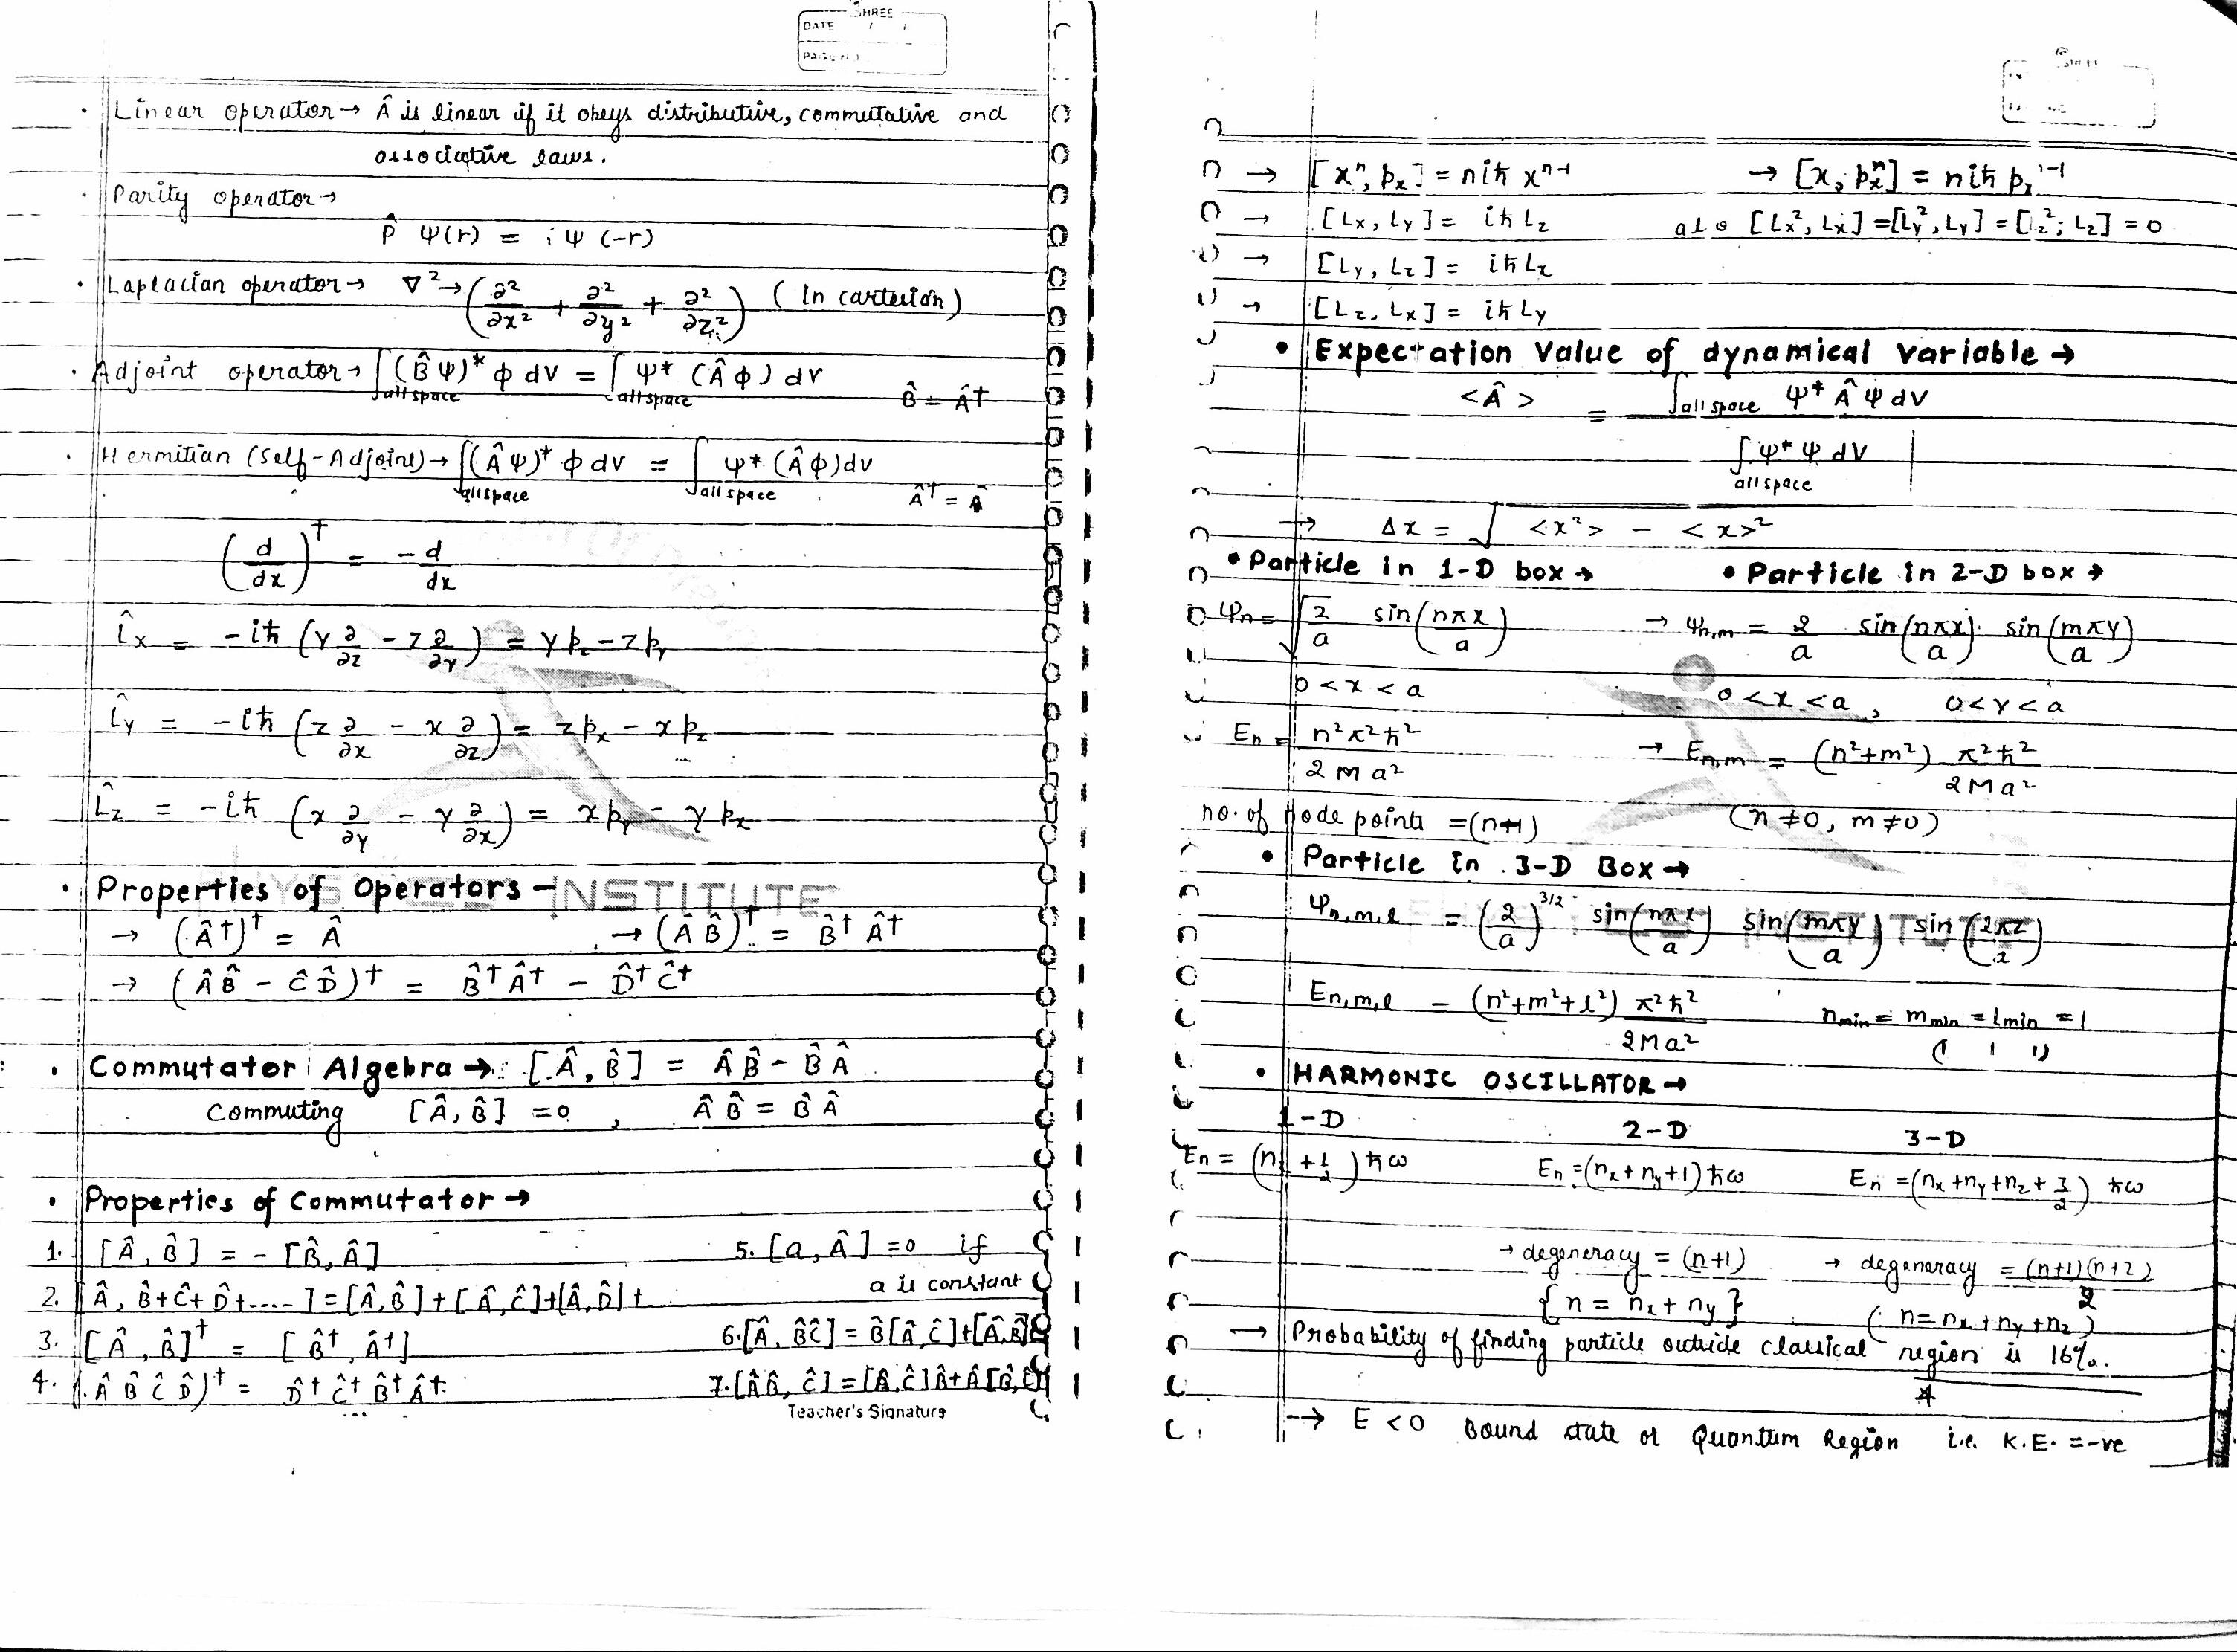 SHREE
DATE / /
PAGE NO.
· Linear operator → Â is linear if it obeys distributive, commutative and
associative laws.
· Parity operator →
P̂ Ψ(r) = : Ψ(-r)
· Laplacian operator → ∇² → (∂²/∂x² + ∂²/∂y² + ∂²/∂z²) (in cartesian)
· Adjoint operator → ∫all space (B̂Ψ)* φ dv = ∫all space Ψ* (Âφ) dv B̂ = Â†
· Hermitian (Self-Adjoint) → ∫all space (ÂΨ)* φ dv = ∫all space Ψ* (Âφ) dv Â† = Â
(d/dx)† = -d/dx
L̂x = -iħ (y ∂/∂z - z ∂/∂y) = y pz - z py
L̂y = -iħ (z ∂/∂x - x ∂/∂z) = z px - x pz
L̂z = -iħ (x ∂/∂y - y ∂/∂x) = x py - y px
INSTITUTE
· Properties of Operators →
→ (Â†)† = Â → (ÂB̂)† = B̂† Â†
→ (ÂB̂ - ĈD̂)† = B̂†Â† - D̂†Ĉ†
· Commutator Algebra → [Â, B̂] = ÂB̂ - B̂Â
Commuting [Â, B̂] = 0 , ÂB̂ = B̂Â
· Properties of Commutator →
1. [Â, B̂] = -[B̂, Â] 5. [a, Â] = 0 if
a is constant
2. [Â, B̂+Ĉ+D̂+.....] = [Â,B̂]+[Â,Ĉ]+[Â,D̂]+
3. [Â, B̂]† = [B̂†, Â†] 6. [Â, B̂Ĉ] = B̂[Â,Ĉ]+[Â,B̂]Ĉ
4. (ÂB̂ĈD̂)† = D̂†Ĉ†B̂†Â† 7. [ÂB̂, Ĉ] = [Â,Ĉ]B̂+Â[B̂,Ĉ]
Teacher's Signature
→ [xⁿ, px] = niħ xⁿ⁻¹ → [x, pxⁿ] = niħ pxⁿ⁻¹
→ [Lx, Ly] = iħ Lz also [Lx², Lx] = [Ly², Ly] = [Lz², Lz] = 0
→ [Ly, Lz] = iħ Lx
→ [Lz, Lx] = iħ Ly
• Expectation Value of dynamical variable →
<Â> = ∫all space Ψ* Â Ψ dV / ∫all space Ψ* Ψ dV
→ Δx = √(<x²> - <x>²)
• Particle in 1-D box → • Particle in 2-D box →
Ψn = √(2/a) sin(nπx/a) → Ψn,m = 2/a sin(nπx/a) · sin(mπy/a)
0 < x < a 0 < x < a , 0 < y < a
En = n²π²ħ²/2Ma² → En,m = (n²+m²) π²ħ²/2Ma²
no. of node points = (n+1) (n ≠ 0, m ≠ 0)
• Particle in 3-D Box →
Ψn,m,l = (2/a)^3/2 sin(nπx/a) sin(mπy/a) sin(lπz/a)
En,m,l = (n²+m²+l²) π²ħ²/2Ma² nmin = mmin = lmin = 1
(1 1 1)
• HARMONIC OSCILLATOR →
1-D 2-D 3-D
En = (nx + 1/2) ħω En = (nx + ny + 1) ħω En = (nx + ny + nz + 3/2) ħω
→ degeneracy = (n+1) → degeneracy = (n+1)(n+2)/2
{n = nx + ny} (n = nx + ny + nz)
→ Probability of finding particle outside classical region is 16%.
→ E < 0 Bound state or Quantum Region i.e. K.E. = -ve